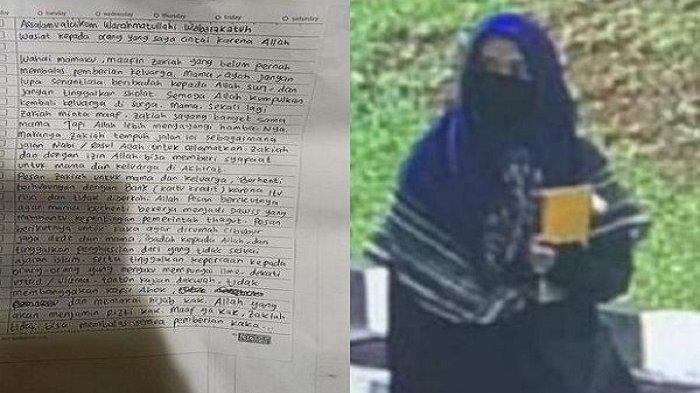 tuesday wednesday thursday friday saturday
Assalamualaikum Warahmatullahi Wabarakatuh
Wasiat kepada orang yang saya cintai karena Allah
Wahai mamaku, maafin zakiah yang belum pernah
membalas pemberian keluarga. Mama, ayah jangan
lupa senantiasa beribadah kepada Allah swt, dan
jangan tinggalkan sholat. Semoga Allah kumpulkan
kembali keluarga di surga. Mama, sekali lagi
zakiah minta maaf, zakiah sayang banget sama
mama Tapi Allah lebih menyayangi hamba-Nya.
makanya zakiah tempuh jalan ini sebagaimana
jalan Nabi / Rasul Allah untuk selamatkan zakiah
dan dengan izin Allah bisa memberi syafaat
untuk mama dan keluarga di Akhirat
Pesan zakiah untuk mama dan keluarga, Berhenti
berhubungan dengan Bank (kartu kredit) karena itu
riba dan tidak diberkahi Allah. Pesan berikutnya
agar mama berhenti bekerja menjadi Dawis yang
membantu kepentingan pemerintah thogut. Pesan
berikutnya untuk kaka agar dirumah Cibubur
jaga dede dan mama, ibadah kepada Allah, dan
tinggalkan penghasilan dari yang tidak sesuai
ajaran islam, serta tinggalkan kepercaan kepada
orang-orang yang mengaku mempunyai ilmu, dekati
ustad / ulama, tonton kajian dakwah, tidak
membanggakan kafir Ahok,
dan memakai hijab kak. Allah yang
akan menjamin Rizki kak. Maaf ya kak, zakiah
tidak bisa membalas semua pemberian kaka...